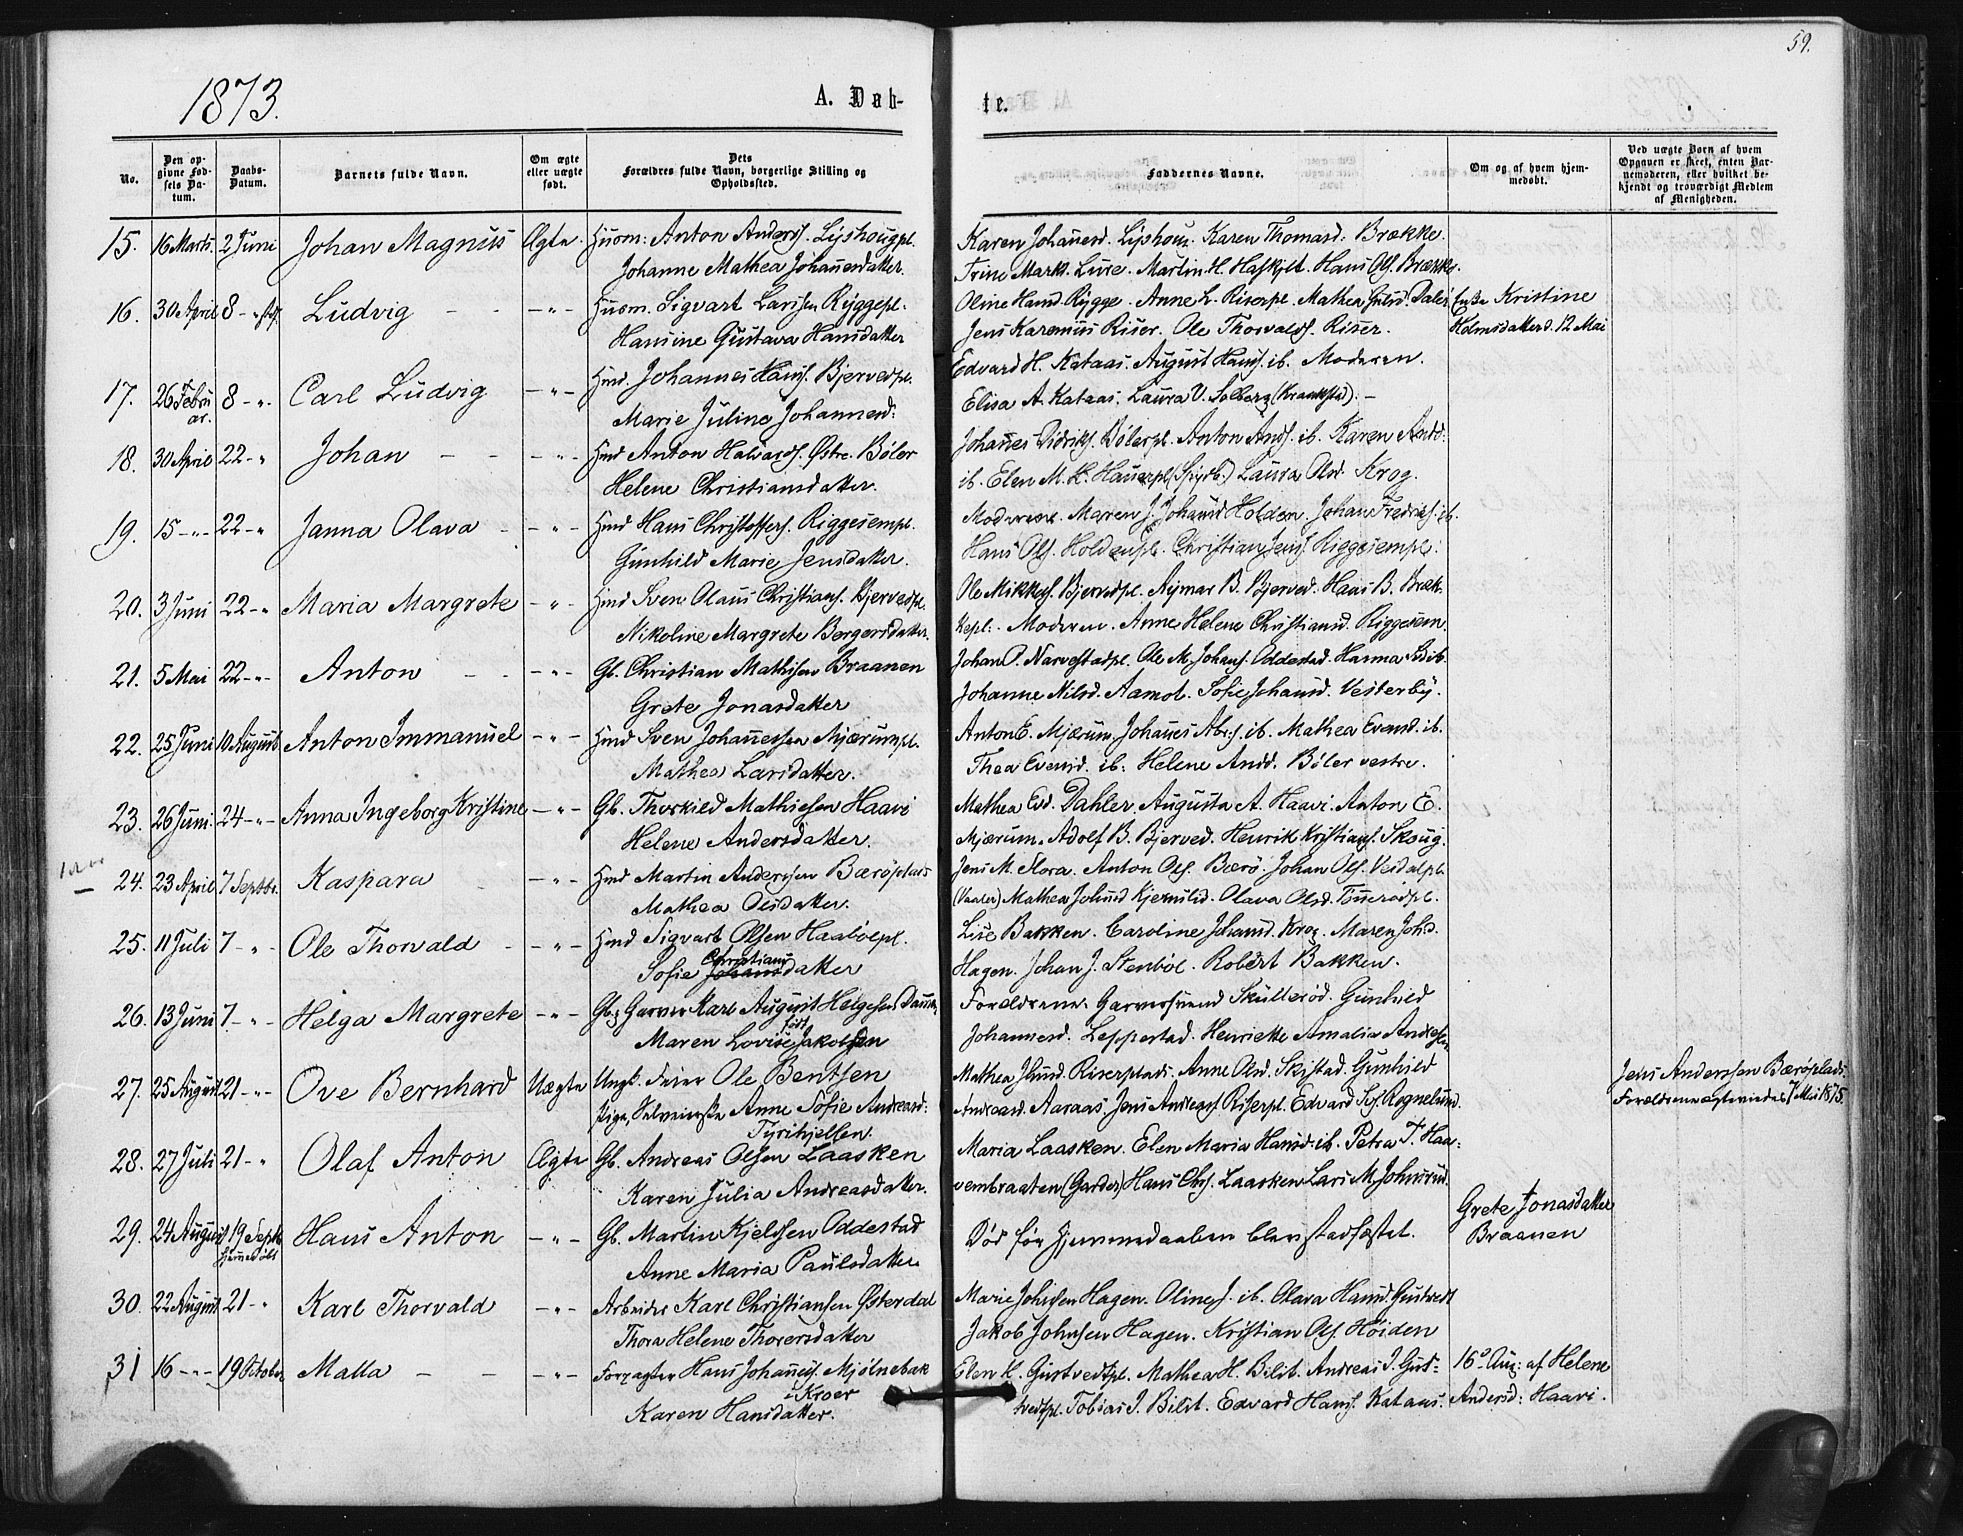 59.
1873.
A. Døb-
te.
No.
Den op-
givne Fød-
sels Da-
tum.
Daabs-
Datum.
Barnets fulde Navn.
Om ægte
eller uægte
født.
Dets
Forældres fulde Navn, borgerlige Stilling og
Opholdssted.
Faddernes Navne.
Om og af hvem hjem-
medøbt.
Ved uægte Børn af hvem
Opgaven er skeet, enten Bar-
nemoderen, eller hvilket be-
kjendt og troværdigt Medlem
af Menigheden.
15. 16 Marts. 2 Juni Johan Magnus Ægte. Huusm: Anton Anders. Lyshougpl.
Johanne Mathea Johannesdatter.
Karen Johannesd. Lyshoug. Karen Thomasd. Brække.
Trine Mark. Lure. Martin H. Haskjelt. Hans Ols. Brække.
16. 30 April 8 - Ludvig - - - " - Huusm. Sigvart Larssen Ryggepl.
Hansine Gustava Hansdatter
Oline Hansd. Rygge. Anne L. Riserpl. Mathea Daler
Jens Karenius Riser. Ole Thorvalds. Riser.
Enke Kristine
Holmsdatter d. 12 Mai
17. 26 Febru
ar. 8 - ". Carl Ludvig - " - Hmd. Johannes Hans. Bjervedpl.
Marie Juline Johannesd:
Edvard H. Kataas. August Hans. ib. Moderen.
Elisa A. Kataas. Laura V. Solberg (Kraakstad). -
18. 30 April 22 - " Johan - - - " - Hmd Anton Halvards. Østre Bøler
Helene Christiansdatter.
Johannes Didriks. Bølerpl. Anton Ands. ib. Karen Andd.
ib. Elen M. H. Hauerpl (Spydb.) Laura Olsd. Krog.
19. 15 - " - 22 - " Janna Olava - - " - Hmd Hans Christoffers. Riggesempl.
Gunhild Marie Jensdatter.
Moderen. Maren J. Johansd Holden. Johan Fredriks. ib.
Hans Ols. Holdenpl. Christian Jens. Riggesempl:
20. 3 Juni 22 - " Maria Margrete - " - Hmd Sven Olaus Christians. Bjervedpl.
Nikoline Margrete Borgersdatter.
Ole Mikkels. Bjervedpl. Aymar B. Bjerved. Hans B. Bræk-
kepl: . Moderen. Anne Helene Christiansd. Riggesem.
21. 5 Mai 22 - " - Anton - - - " - Gb. Christian Mathisen Braanen
Grete Jonasdatter
Johan P. Narvestadpl. Ole M. Johans. Oddestad. Hanna ib.
Johanne Nilsd. Aamot. Sofie Johansd. Vesterby.
22. 25 Juni 10 August Anton Immanuel - " - Hmd Sven Johannessen Mjærumpl.
Mathea Larsdatter.
Anton E. Mjærum. Johannes Abr:s. ib. Mathea Evensd. ib.
Thea Evensd. ib: Helene Andd. Bøler vestre.
23. 26 Juni 24 - " - Anna Ingeborg Kristine - " - Gb. Thorkild Mathiesen Haavi
Helene Andersdatter.
Mathea Ed. Dahler. Augusta A. Haavi. Anton E.
Mjærum. Adolf B. Bjerved. Henrik Kristians. Skoug.
24. 23 April 7 Septbr. Kaspara - - " - Hmd Martin Anderssen Bærøplads
Mathea Olsdatter.
Jens M. Flora. Anton Ols. Bærø. Johan Ols. Veidalpl.
(Vaaler) Mathea Johnsd Kjernslid. Olava Olsd. Tønnerødpl.
25. 11 Juli 7 - " - Ole Thorvald - - " - Hmd Sigvart Olsen Haabølpl.
Christians
Sofie Johansdatter
Lise Bakken. Caroline Johansd. Krog. Maren Johd.
Hagen. Johan J. Stenbøl. Robert Bakken.
26. 13 Juni 7 - " - Helga Margrete - " - Gb. & Garver Karl August Helgesen
født
Maren Lovise Jakobsen
Forældrene. Garversvend Skullerød. Gunhild
Johannesd. Leppestad. Henriette Amalia Andersen
27. 25 August 21 - " - Ove Bernhard Uægte Ungk. Ole Bentsen
Pige, Anne Sofie Andreasd:
Tyrihjellen.
Mathea Riserplads. Anne Olsd. Skjstad. Gunhild
Andreasd. Aaraas. Jens Andreas. Riserpl. Edvard Sof. Rognelund.
Jens Anderssen Bærøplads.
Forældrene ægteviedes 7 Mai 1875.
28. 27 Juli 21 - " Olaf Anton Ægte Gb. Andreas Olsen Laasken
Karen Julia Andreasdatter.
Maria Laasken. Elen Maria Hansd. ib. Petra T. Haa-
vembraaten (Garder) Hans Chrs. Laasken Lars M. Johnsrud.
29. 24 August 19 Septb
hjemmedøbt Hans Anton - " - Gb. Martin Kjelssen Oddestad
Anne Maria Paulsdatter
Død før Hjemmedaaben blev stadfæstet.
Grete Jonasdatter
Braanen
30. 22 August. 21 - " Karl Thorvald - " - Arbeider Karl Christiansen Østerdal
Thora Helene Thorersdatter
Marie Johnsen Hagen. Oline J. ib. Olava Hansd. Gustvedt
Jakob Johnsen Hagen. Kristian Ols. Høiden
31 16 - " - 19 October Malla - - - " - Forpagter Hans Johanness. Mjølnebæk
i Kroer
Karen Hansdatter.
Elen K. Gustvedtpl. Mathea H. Bilit. Andreas J. Gust-
vedtpl. Tobias J. Bilit. Edvard Hans. Kataas.
16de Aug: af Helene
Andersd: Haavi.